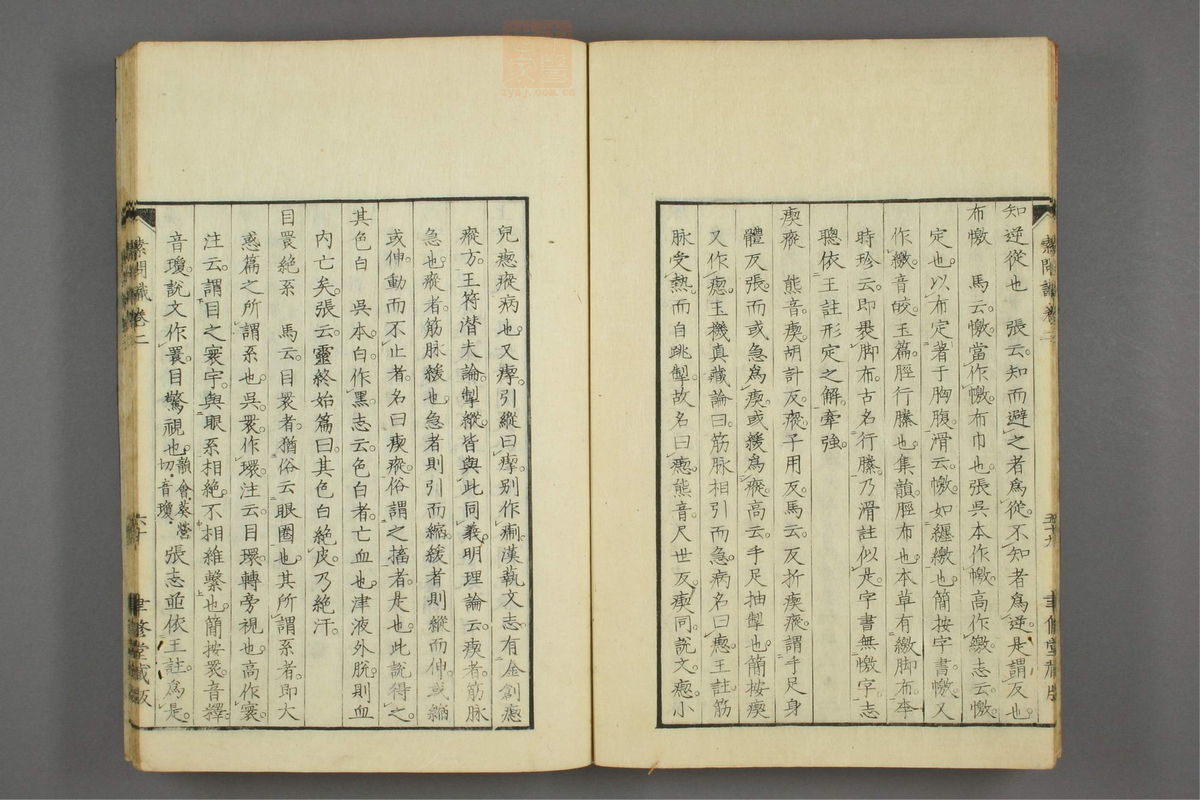 知逆從也　張云知而避之者爲從不知者爲逆是謂反也
布憿　馬云憿當作幑布巾也張吳本作憿高作繳志云憿
定也以布定著于胸腹滑云憿如纏繳也簡按字書憿又
作繳音皎玉篇脛行縢也集韻脛布也本草有繳脚布李
時珍云即裹脚布古名行縢乃滑註似是字書無憿字志
聰依王註形定之解牽強
瘈瘲　熊音瘈胡計反瘲子用反馬云反折瘈瘲謂手足身
體反張而或急爲瘈或緩爲瘲高云手足抽掣也簡按瘈
又作瘛玉機真藏論曰筋脉相引而急病名曰瘛王註筋
脉受熱而自跳掣故名曰瘛熊音尺世反瘈同說文瘛小
素問識卷二
五十九
聿修堂藏版
兒瘛瘲病也又㨖引縱曰㨖別作痸漢藝文志有金創瘛
瘲方王符潛夫論掣縱皆與此同義明理論云瘈者筋脉
急也瘲者筋脉緩也急者則引而縮緩者則縱而伸或縮
或伸動而不止者名曰瘈瘲俗謂之搐者是也此說得之
其色白　吳本白作黑志云色白者亡血也津液外脫則血
內亡矣張云靈終始篇曰其色白絕皮乃絕汗
目睘絕系　馬云目睘者猶俗云眼圈也其所謂系者即大
惑篇之所謂系也吳睘作環注云目環轉旁視也高作寰
注云謂目之寰宇與眼系相絕不相維繫也簡按睘音擇
音瓊說文作瞏目驚視也韻會葵營切音瓊張志並依王註爲是
素問識卷二
六十
聿修堂藏版